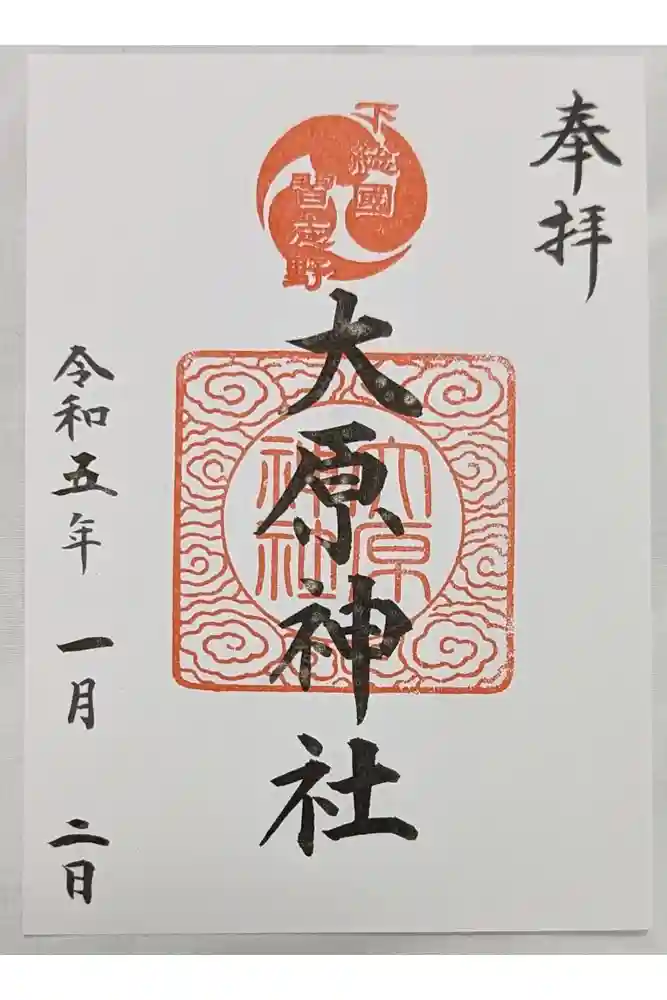 奉拝
下総國
習志野
大原神社
大原
神社
令和五年 一月 二日